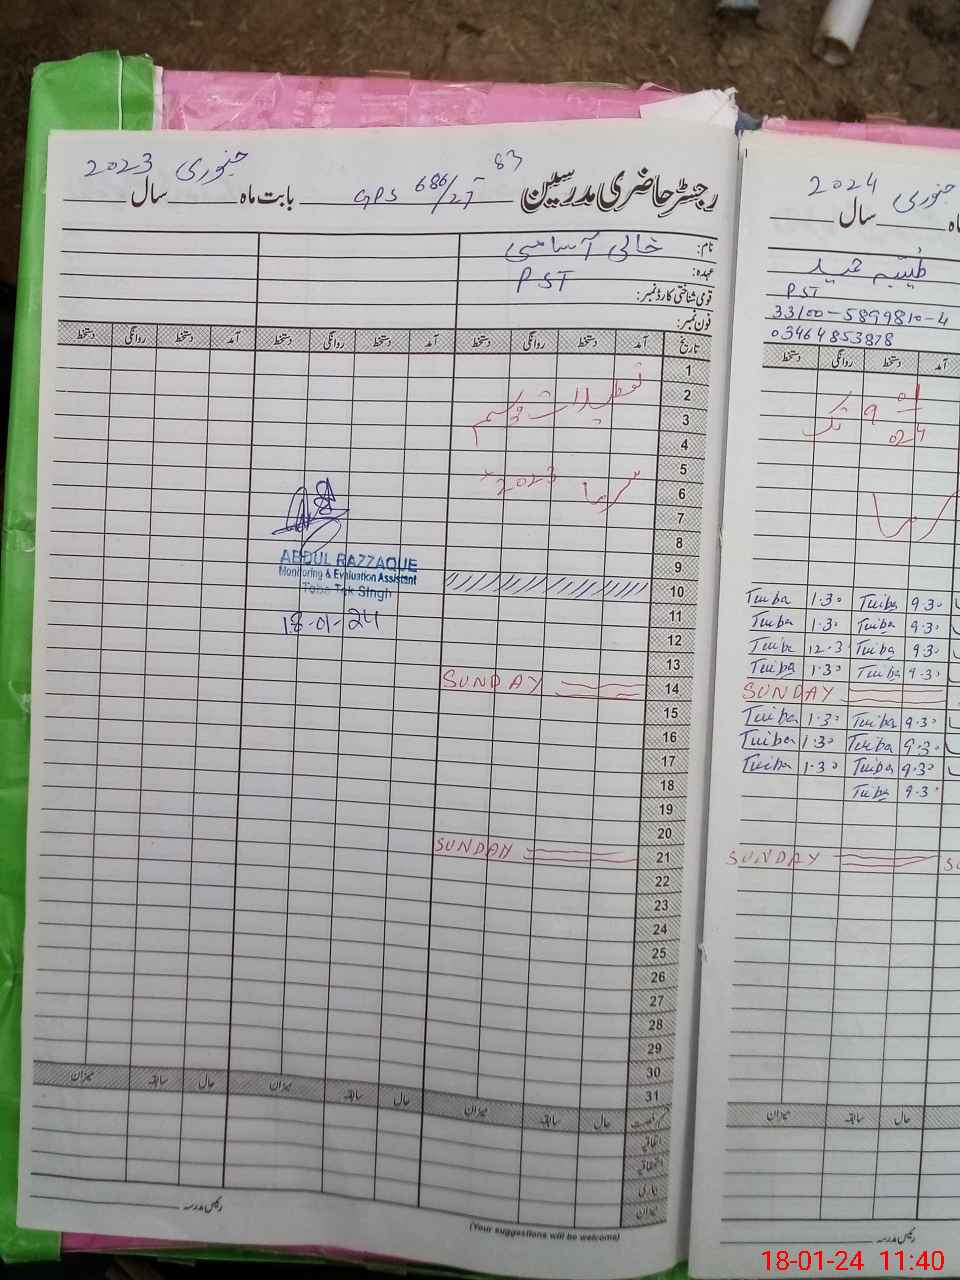 رجسٹر حاضری مدرسین GPS 686/27 83 بابت ماہ جنوری سال 2023
نام: خالی آسامی
عہدہ: PST
قومی شناختی کارڈ نمبر:
فون نمبر:
تاریخ آمد دستخط روانگی دستخط آمد دستخط روانگی دستخط آمد دستخط روانگی دستخط
1
2 تعطیلات موسم
3
4
5
6 سرما 2023
7
8
9
10
11
12
13
14 SUNDAY
15
16
17
18
19
20
21 SUNDAY
22
23
24
25
26
27
28
29
30
31
ABDUL RAZZAQUE
Monitoring & Evaluation Assistant
Toba Tek Singh
18-01-24
حال سابقہ میزان حال سابقہ میزان حال سابقہ میزان
اتفاقیہ
استحقاقیہ
بیماری
میزان
رئیس مدرسہ
(Your suggestions will be welcome)
جنوری سال 2024
طیبہ حمید
PST
33100-5899810-4
03464853878
آمد دستخط روانگی دستخط
9 تک
01
024
9.30 Tuiba 1.30 Tuiba
9.30 Tuiba 1.30 Tuiba
9.30 Tuiba 12.3 Tuiba
9.30 Tuiba 1.30 Tuiba
SUNDAY
9.30 Tuiba 1.30 Tuiba
9.30 Tuiba 1.30 Tuiba
9.30 Tuiba 1.30 Tuiba
9.30 Tuiba
SUNDAY SU
حال سابقہ میزان
رئیس مدرسہ
18-01-24 11:40